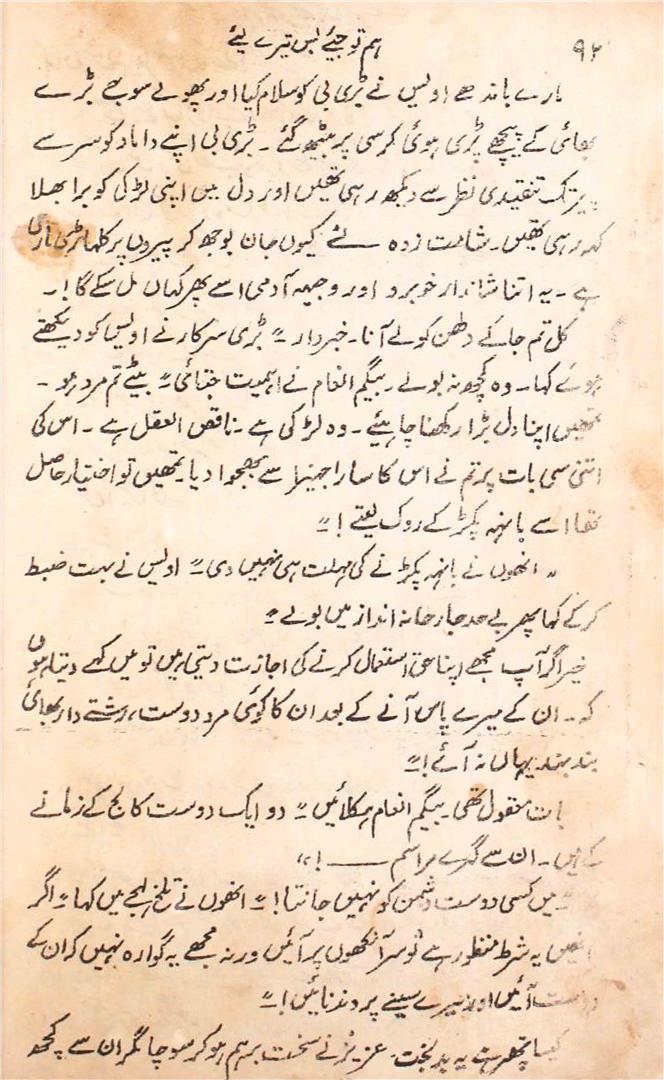 ۹۲
ہم تو جیئے بس تیرے لیئے
بارے باندھے اویس نے بڑی بی کو سلام کیا اور پھولے سوجھے بڑے
بھائی کے پیچھے پڑی ہوئی کرسی پر بیٹھ گئے ۔ بڑی بی اپنے داماد کو سر سے
پیر تک تنقیدی نظر سے دیکھ رہی تھیں اور دل میں اپنی لڑکی کو برا بھلا
کہہ رہی تھیں۔ شامت زدہ نے کیوں جان بوجھ کر پیروں پر کلہاڑی ماری
ہے ۔ یہ اتنا شاندار خوبرو اور وجیہہ آدمی اسے پھر کہاں مل سکے گا!۔
کل تم جا کے دلھن کو لے آنا۔ خبردار ۔" بڑی سرکار نے اویس کو دیکھتے
ہوئے کہا۔ وہ کچھ نہ بولے ۔ بیگم انعام نے اہمیت جتائی ۔" بیٹے تم مرد ہو ۔
تمھیں اپنا دل بڑا رکھنا چاہیئے ۔ وہ لڑکی ہے ۔ ناقص العقل ہے ۔ اس کی
اتنی سی بات پر تم نے اس کا سارا جہیز اسے بھجوا دیا۔ تمھیں تو اختیار حاصل
تھا اسے بانہہ پکڑ کے روک لیتے !۔"
" انھوں نے بانہہ پکڑنے کی مہلت ہی نہیں دی ۔" اویس نے بہت ضبط
کر کے کہا پھر بے حد جارحانہ انداز میں بولے ۔"
خیر اگر آپ مجھے اپنا حق استعمال کرنے کی اجازت دیتی ہیں تو میں کہے دیتا ہوں
کہ ۔ ان کے میرے پاس آنے کے بعد ان کا کوئی مرد دوست، رشتے دار بھائی
بند بند یہاں نہ آئے !۔"
بات معقول تھی ۔ بیگم انعام ہکلائیں ۔" دو ایک دوست کالج کے زمانے
کے ہیں ۔ ان سے گہرے مراسم ——— !،،
" میں کسی دوست دشمن کو نہیں جانتا !۔" انھوں نے تلخ لہجے میں کہا ۔" اگر
انھیں یہ شرط منظور ہے تو سر آنکھوں پر آئیں ورنہ مجھے یہ گوارہ نہیں کہ ان کے
دوست آئیں اور میرے سینے پر دندنائیں !۔"
کیسا پتھر ہے یہ بد بخت۔ عزیز نے سخت برہم ہو کر سوچا مگر ان سے کچھ